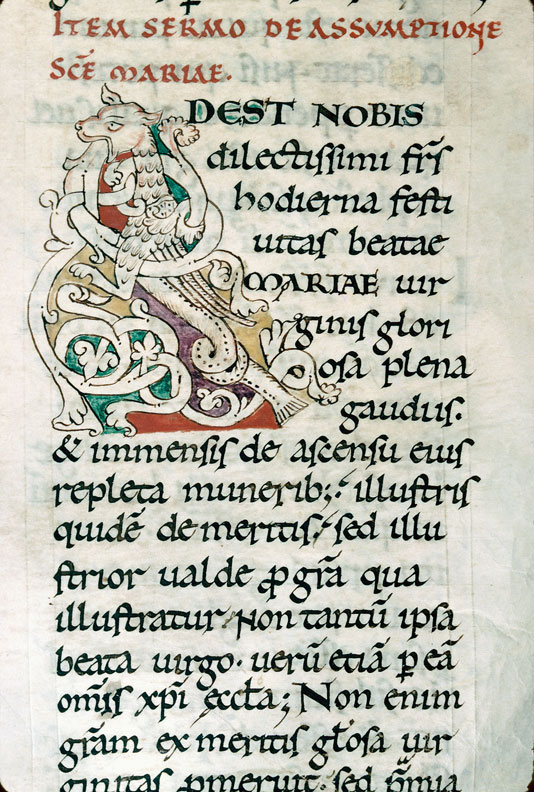 ITEM SERMO DE ASSVMPTIONE
SCĒ MARIAE.
ADEST NOBIS
dilectissimi fr̄s
hodierna festi
uitas beatae
MARIAE uir
ginis glori
osa plena
gaudiis.
& immensis de ascensu eius
repleta munerib; illustris
quidē de meritis; sed illu
strior ualde ꝓ gr̄a qua
illustratur. Non tantū ipsa
beata uirgo. uerū etiā ꝑ eā
om̄is xp̄i eccl̄a; Non enim
gr̄am ex meritis gl̄osa uir
ginitas ꝓmeruit. sed p̄mia